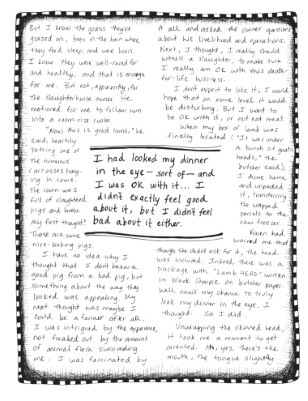 But I know the grass they've
grazed on, been in the barn where
they feed, sleep, and were born.
I know they were well-cared for
and healthy, and that is enough
for me. But not, apparently, for
the slaughterhouse owner. He
motioned for me to follow him
into a room-size cooler.
"Now this is good lamb," he
said, heartily
patting one of
the numerous
carcasses hang-
ing in rows.
The room was
full of slaughtered
pigs and lambs.
My first thought?
Those are some
nice-looking pigs.
I have no idea why I
thought that. I don't know a
good pig from a bad pig, but
something about the way they
looked was appealing. My
next thought was maybe I
could be a farmer after all.
I was intrigued by the experience,
not freaked out by the amount
of animal flesh surrounding
me. I was fascinated by
I had looked my dinner
in the eye—sort of—and
I was OK with it... I
didn't exactly feel good
about it, but I didn't feel
bad about it either.
it all and asked the owner questions
about his livelihood and operations.
Next, I thought, I really should
witness a slaughter, to make sure
I really am OK with this death-
for-life business.
I don't expect to like it, I would
hope that on some level it would
be disturbing. But I want to
be OK with it, or not eat meat.
When my box of lamb was
finally located ("It was under
a bunch of goat
heads," the
butcher said),
I drove home
and unpacked
it, transferring
the wrapped
parcels to the
new freezer.
Karen had
warned me that
though she didn't ask for it, the head
was included. Indeed, there was a
package with "Lamb HEAD" written
in black Sharpie on butcher paper.
Well, now's my chance to truly
look my dinner in the eye, I
thought. So I did.
Unwrapping the skinned head,
it took me a moment to get
oriented. Ah, yes, there's the
mouth, the tongue slightly